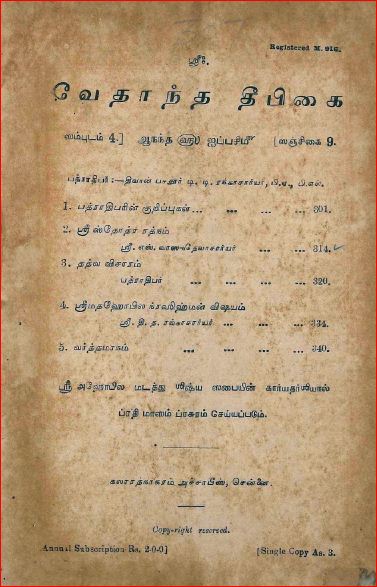 Registered M. 916.
ஸ்ரீ:.
வேதாந்த தீபிகை
ஸம்புடம் 4.] ஆநந்த ௵ ஐப்பசி௴ [ஸஞ்சிகை 9.
பத்ராதிபர்:—திவான் பஹதூர் டி. டி. ரங்காசார்யர், பி.ஏ., பி.எல்.
1. பத்ராதிபரின் குறிப்புகள்... ... ... ... 301.
2. ஸ்ரீ ஸ்தோத்ர ரத்நம்
ஸ்ரீ. எஸ். வாஸுதேவாசார்யர் ... ... 314.
3. தத்வ விசாரம்
பத்ராதிபர் ... ... ... 320.
4. ஸ்ரீமதஹோபில ந்ருஸிஹ்மன் விஷயம்
ஸ்ரீ. தி. த. ரங்காசார்யர் ... ... ... 334.
5. வர்த்தமாநம் ... ... ... 340.
ஸ்ரீ அஹோபில மடத்து ஶிஷ்ய ஸபையின் கார்யதர்ஶியால்
ப்ரதி மாஸம் ப்ரசுரம் செய்யப்படும்.
கலாரத்நாகரம் அச்சாபீஸ், சென்னை.
Copy-right reserved.
Annual Subscription Rs. 2-0-0] [Single Copy As. 3.